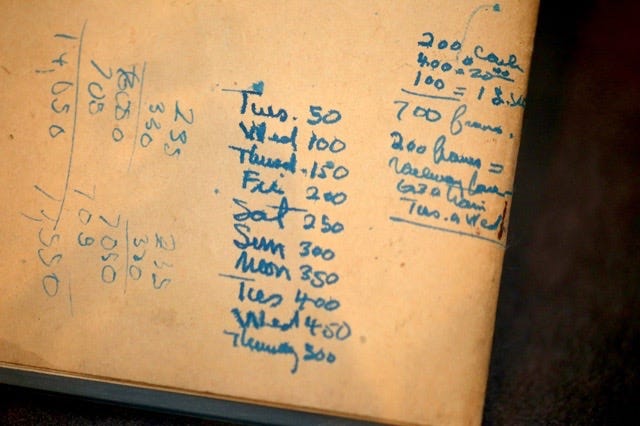 Tues. 50
Wed 100
Thursd. 150
Fri 200
Sat 250
Sun 300
Mon 350
Tues 400
Wed 450
Thursday 500
200 Cash
400 = 20
100 = 1
700 francs.
200 francs =
railway
Tues. & Wed
235
330
7050
705
14,650
235
330
7050
705
77,550